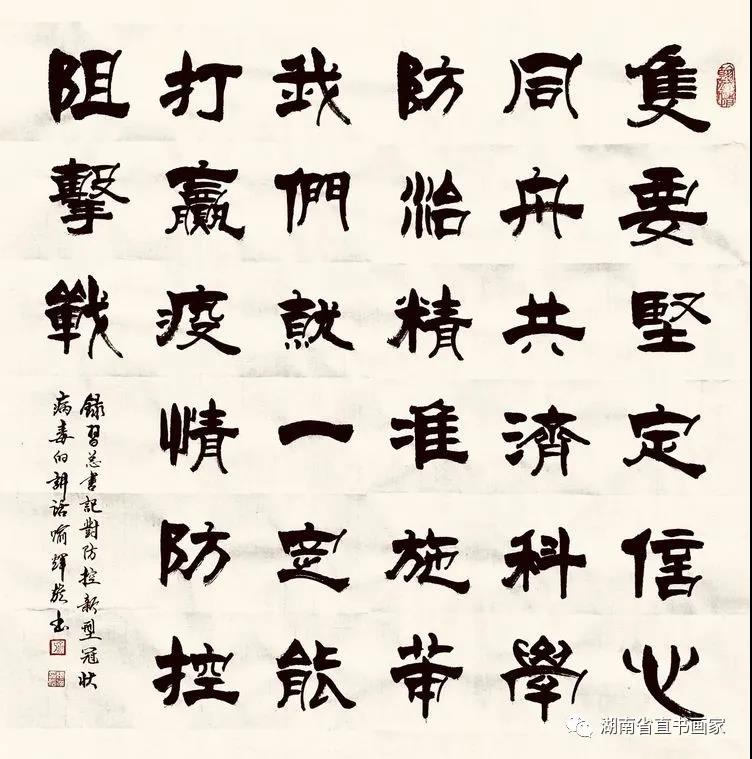 隻要堅定信心
同舟共濟科學
防治精準施策
我們就一定能
打贏疫情防控
阻擊戰
錄習总書記對防控新型冠狀
病毒的講話喻輝龄书
湖南省直书画家